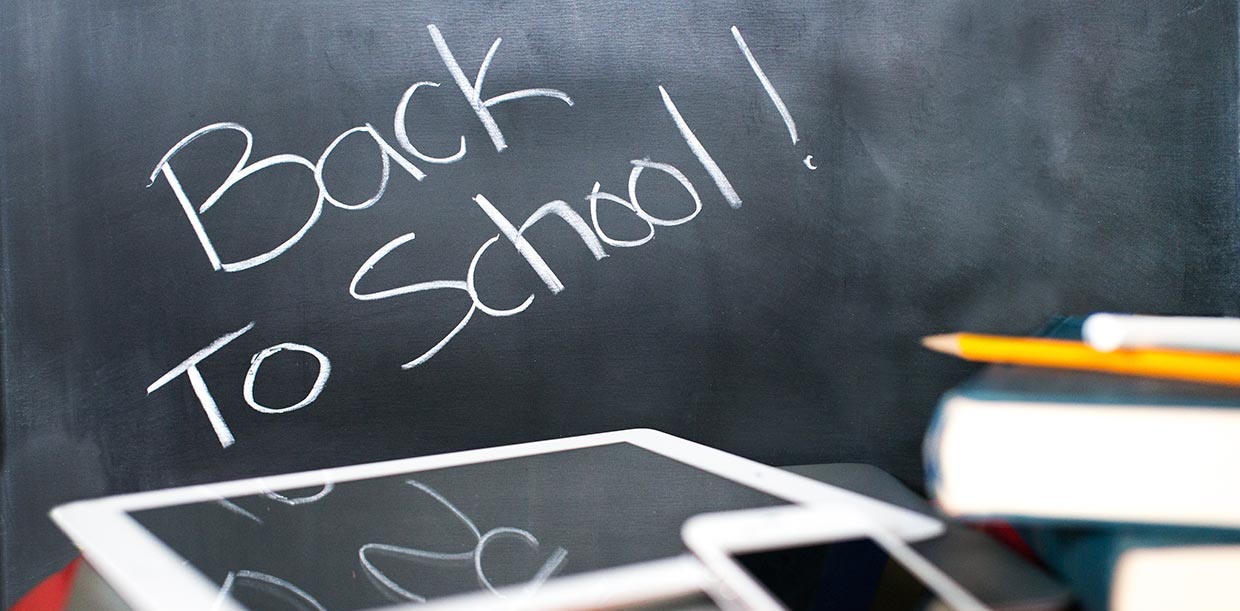 Back
To School!